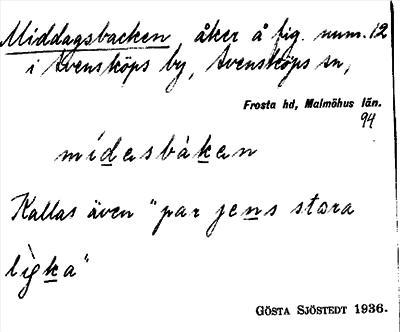 Middagsbacken åker å fig. num. 12
i Svensköps by, Svensköps sn,
Frosta hd, Malmöhus län.
94
mídasbàkan
Kallas även "par jens stora
lỳcka"
GÖSTA SJÖSTEDT 1936.